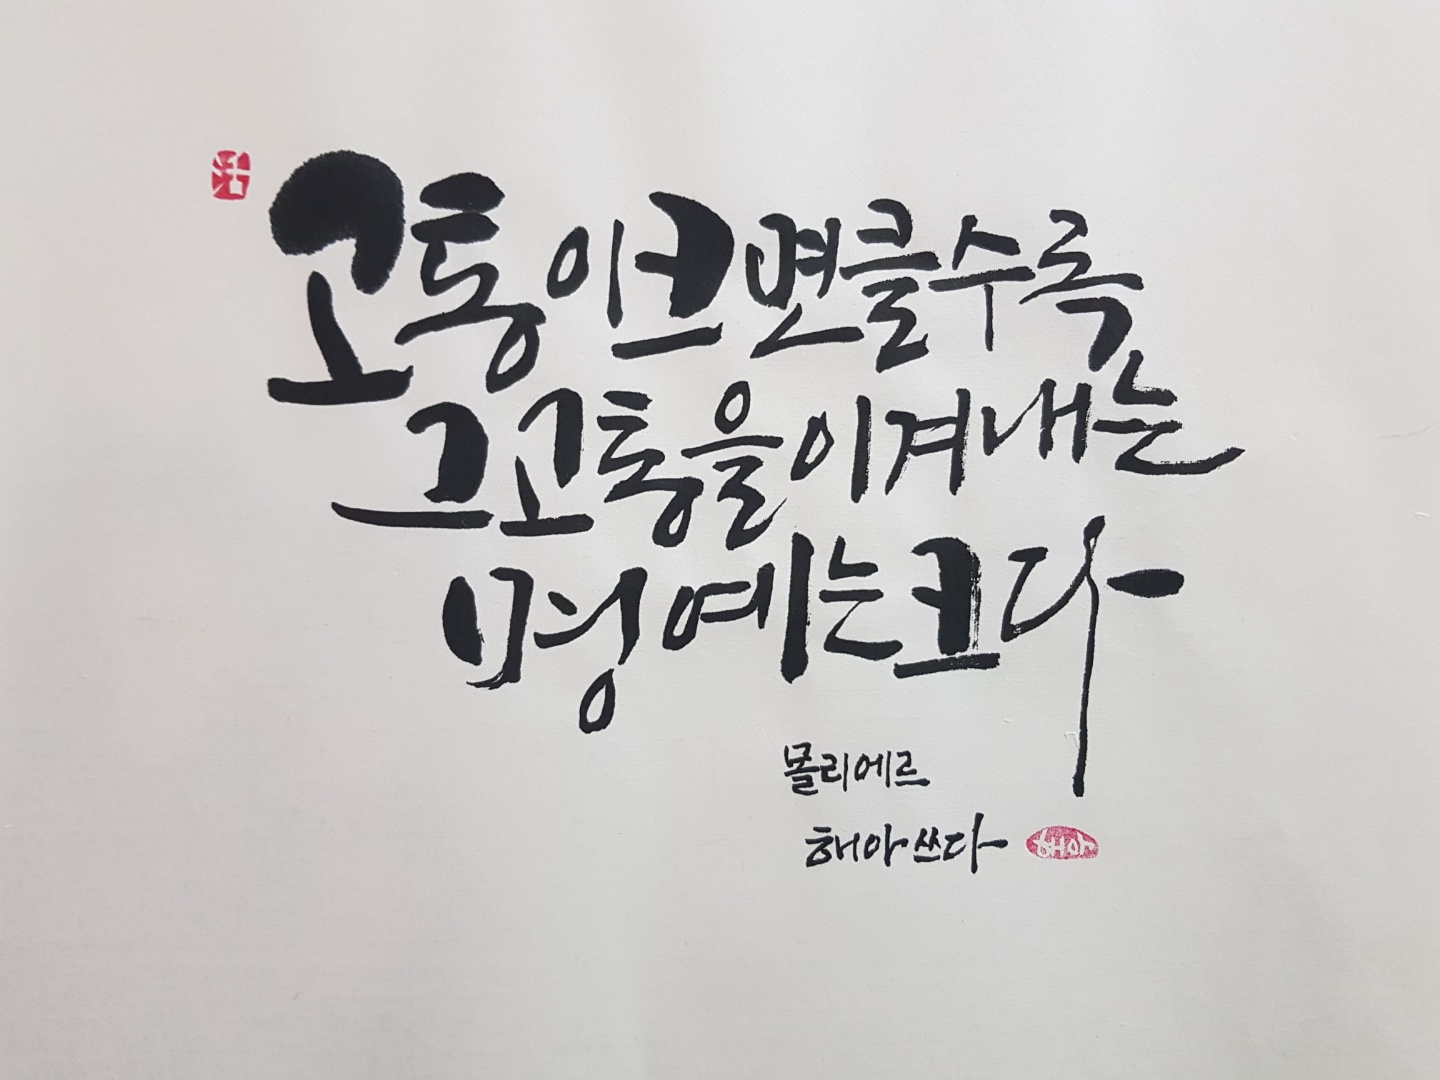 고통이 크면 클수록
그 고통을 이겨내는
명예는 크다
몰리에르
해아 쓰다 해아